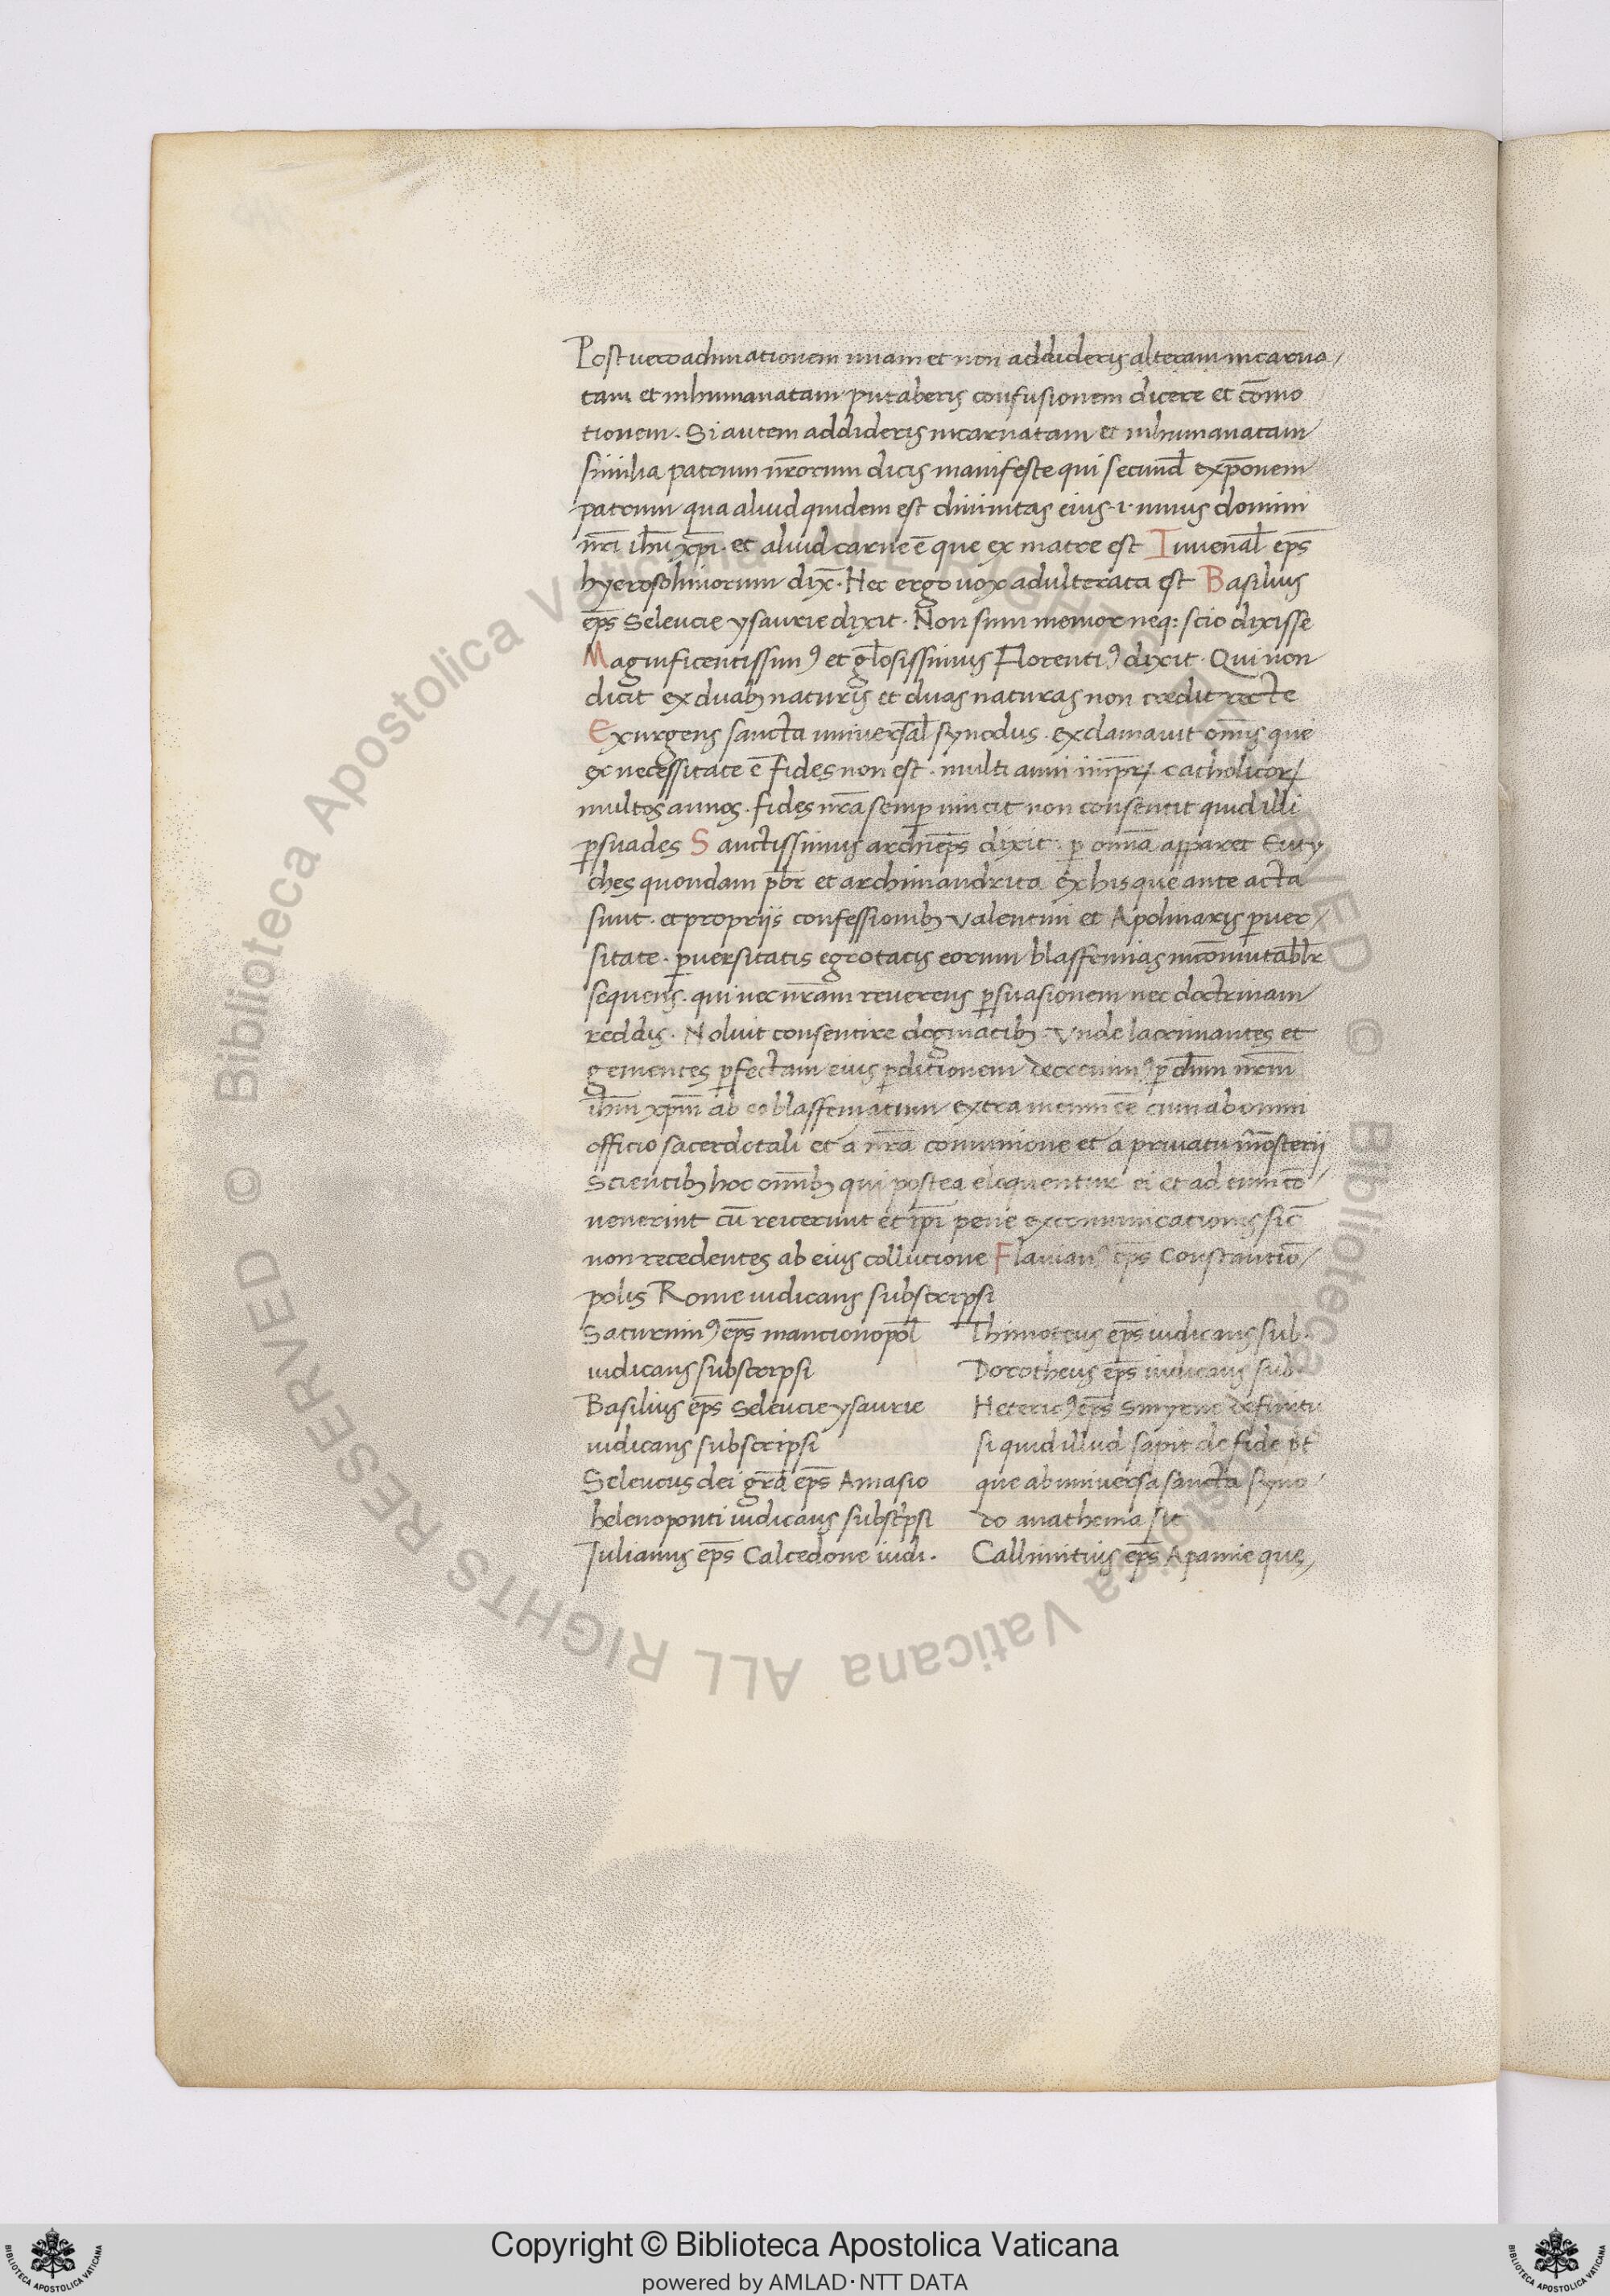 Post uero adunationem unam et non addideris alteram incarna/
tam et inhumanatam putaberis confusionem dicere et com̄o
tionem. Si autem addideris incarnatam et inhumanatam
similia patrum nr̄orum dicis manifeste qui secund̄ exp̄onem
patrum qua aliud quidem est diuinitas eius .i. unius domini
nr̄i ih̄u xp̄i. et aliud carne ē que ex matre est Iuuenal̄ ep̄s
hyerosolimorum dix̄. Hec ergo uox adulterata est Basilius
ep̄s Seleucie ysaurie dixit. Non sum memor neq: scio dixisse
Magnificentissimꝰ et gl̄osissimus Florentiꝰ dixit. Qui non
dicit ex duabꝫ naturis et duas naturas non credit recte
Exurgens sancta uniuersal̄ synodus. exclamauit om̄is que
ex necessitate ē fides non est. multi anni imp̄r̨. catholicor̨
multos annos. fides nr̄a semꝑ uincit non consentit quid illi
ꝑsuades Sanctissimus archiep̄s dixit. ꝑ om̄ia apparet Euty
ches quondam p̄br et archimandrita ex his que ante acta
sunt. et propriis confessionibꝫ Valentini et Apolinaris ꝑuer/
sitate. ꝑuersitatis egrotatis eorum blasfemias incōmutabl̄r
sequens. qui nec nr̄am reuerens ꝑsuasionem nec doctrinam
reddis. Noluit consentire dogmatibꝫ. Vnde lacrimantes et
gementes ꝑfectam eius ꝑditionem decreuimꝰ ꝑ dn̄m nr̄m
ih̄m xp̄m ab eo blasfematum extraneum eē eum ab omni
officio sacerdotali et a nr̄a comunione et a priuatu m̄osterii
Scientibꝫ hoc om̄ibꝫ qui postea eloquentur ei et ad eum cō/
uenerint cū reierunt et ip̄i pene excomunicationis sic̄
non recedentes ab eius collucione Flavianꝰ ep̄s Constantīo/
polis Rome iudicans subscripsi
Saturninꝰ ep̄s mancionopol̄
iudicans subscripsi
Basilius ep̄s Seleucie ysaurie
iudicans subscripsi
Seleucus dei gr̄a ep̄s Amasio
helenoponti iudicans subscripsi
Julianus ep̄s Calcedone iudi.
Thimoteus ep̄s iudicans sub.
Dorotheus ep̄s iudicans sub.
Hetericꝰ ep̄s Smyrne definitu
si quid illud sapit de fide p̄t
que ab uniuersa sancta syno/
do anathema sit
Callinitius ep̄s Apamie que/
Biblioteca Apostolica Vaticana ALL RIGHTS RESERVED © Biblioteca Apostolica Vaticana ALL RIGHTS RESERVED ©
Copyright © Biblioteca Apostolica Vaticana
powered by AMLAD·NTT DATA
BIBLIOTECA APOSTOLICA VATICANA
BIBLIOTECA APOSTOLICA VATICANA